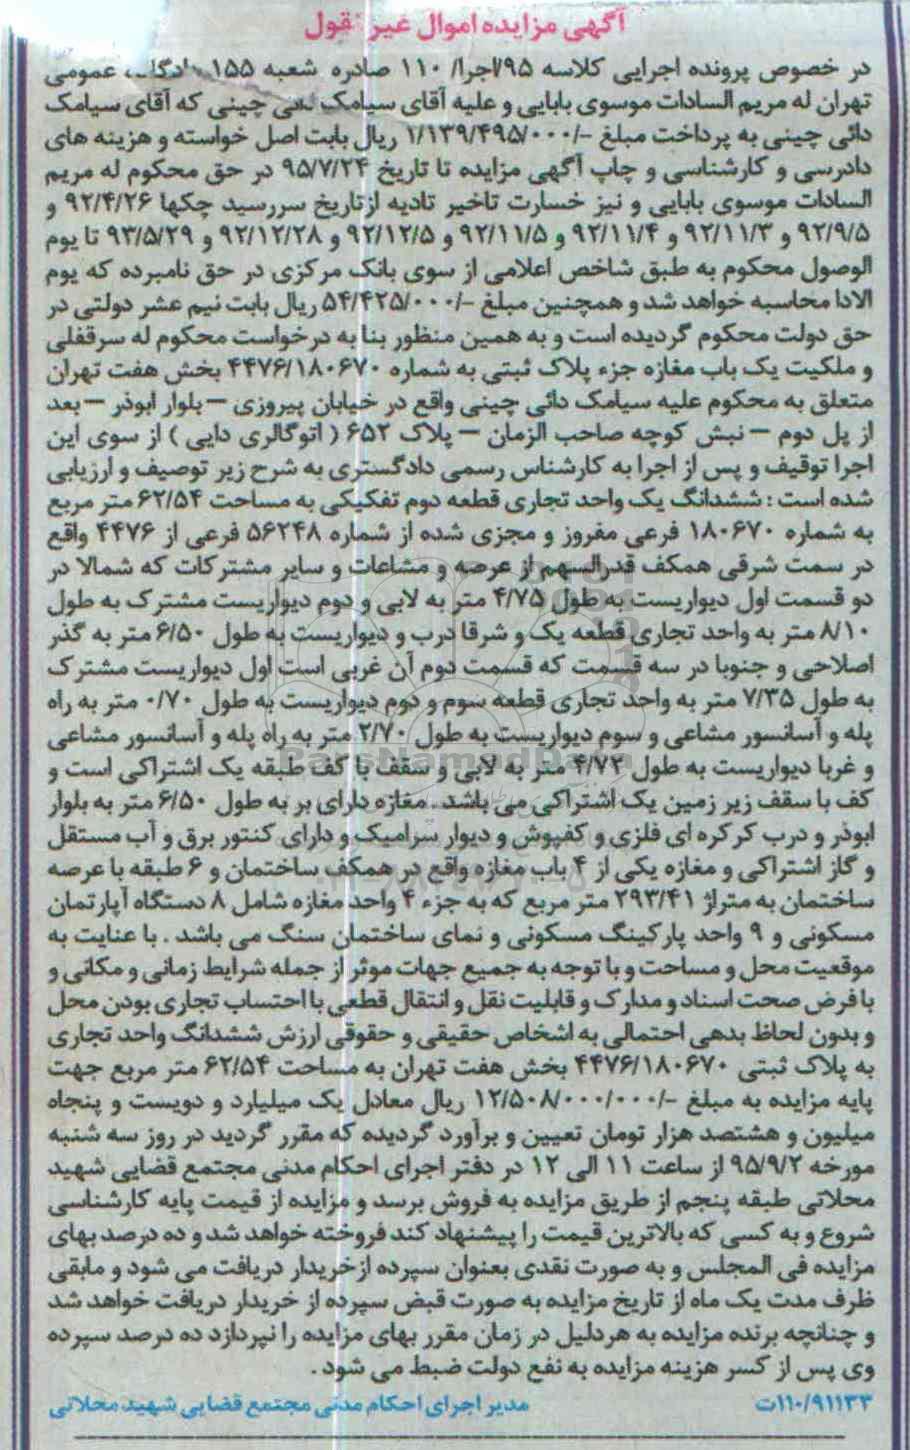 آگهی مزایده اموال غیر منقول
در خصوص پرونده اجرایی کلاسه ۹۵/اجرا/ ۱۱۰ صادره شعبه ۱۵۵ دادگاه عمومی
تهران له مریم السادات موسوی بابایی و علیه آقای سیامک دائی چینی که آقای سیامک
دائی چینی به پرداخت مبلغ -/۱/۱۳۹/۴۹۵/۰۰۰ ریال بابت اصل خواسته و هزینه های
دادرسی و کارشناسی و چاپ آگهی مزایده تا تاریخ ۹۵/۷/۲۴ در حق محکوم له مریم
السادات موسوی بابایی و نیز خسارت تاخیر تادیه ازتاریخ سررسید چکها ۹۲/۴/۲۶ و
۹۲/۹/۵ و ۹۲/۱۱/۳ و ۹۲/۱۱/۴ و ۹۲/۱۱/۵ و ۹۲/۱۲/۵ و ۹۲/۱۲/۲۸ و ۹۳/۵/۲۹ تا یوم
الوصول محکوم به طبق شاخص اعلامی از سوی بانک مرکزی در حق نامبرده که یوم
الادا محاسبه خواهد شد و همچنین مبلغ -/۵۴/۴۲۵/۰۰۰ ریال بابت نیم عشر دولتی در
حق دولت محکوم گردیده است و به همین منظور بنا به درخواست محکوم له سرقفلی
و ملکیت یک باب مغازه جزء پلاک ثبتی به شماره ۴۴۷۶/۱۸۰۶۷۰ بخش هفت تهران
متعلق به محکوم علیه سیامک دائی چینی واقع در خیابان پیروزی – بلوار ابوذر – بعد
از پل دوم – نبش کوچه صاحب الزمان – پلاک ۶۵۲ ( اتوگالری دایی ) از سوی این
اجرا توقیف و پس از اجرا به کارشناس رسمی دادگستری به شرح زیر توصیف و ارزیابی
شده است : ششدانگ یک واحد تجاری قطعه دوم تفکیکی به مساحت ۶۲/۵۴ متر مربع
به شماره ۱۸۰۶۷۰ فرعی مفروز و مجزی شده از شماره ۵۶۲۴۸ فرعی از ۴۴۷۶ واقع
در سمت شرقی همکف قدرالسهم از عرصه و مشاعات و سایر مشترکات که شمالا در
دو قسمت اول دیواریست به طول ۴/۷۵ متر به لابی و دوم دیواریست مشترک به طول
۸/۱۰ متر به واحد تجاری قطعه یک و شرقا درب و دیواریست به طول ۶/۵۰ متر به گذر
اصلاحی و جنوبا در سه قسمت که قسمت دوم آن غربی است اول دیواریست مشترک
به طول ۷/۳۵ متر به واحد تجاری قطعه سوم و دوم دیواریست به طول ۰/۷۰ متر به راه
پله و آسانسور مشاعی و سوم دیواریست به طول ۲/۷۰ متر به راه پله و آسانسور مشاعی
و غربا دیواریست به طول ۴/۷۲ متر به لابی و سقف با کف طبقه یک اشتراکی است و
کف با سقف زیر زمین یک اشتراکی می باشد . مغازه دارای بر به طول ۶/۵۰ متر به بلوار
ابوذر و درب کرکره ای فلزی و کفپوش و دیوار سرامیک و دارای کنتور برق و آب مستقل
و گاز اشتراکی و مغازه یکی از ۴ باب مغازه واقع در همکف ساختمان و ۶ طبقه با عرصه
ساختمان به متراژ ۲۹۳/۴۱ متر مربع که به جزء ۴ واحد مغازه شامل ۸ دستگاه آپارتمان
مسکونی و ۹ واحد پارکینگ مسکونی و نمای ساختمان سنگ می باشد . با عنایت به
موقعیت محل و مساحت و با توجه به جمیع جهات موثر از جمله شرایط زمانی و مکانی و
با فرض صحت اسناد و مدارک و قابلیت نقل و انتقال قطعی با احتساب تجاری بودن محل
و بدون لحاظ بدهی احتمالی به اشخاص حقیقی و حقوقی ارزش ششدانگ واحد تجاری
به پلاک ثبتی ۴۴۷۶/۱۸۰۶۷۰ بخش هفت تهران به مساحت ۶۲/۵۴ متر مربع جهت
پایه مزایده به مبلغ -/۱۲/۵۰۸/۰۰۰/۰۰۰ ریال معادل یک میلیارد و دویست و پنجاه
میلیون و هشتصد هزار تومان تعیین و برآورد گردیده که مقرر گردید در روز سه شنبه
مورخه ۹۵/۹/۲ از ساعت ۱۱ الی ۱۲ در دفتر اجرای احکام مدنی مجتمع قضایی شهید
محلاتی طبقه پنجم از طریق مزایده به فروش برسد و مزایده از قیمت پایه کارشناسی
شروع و به کسی که بالاترین قیمت را پیشنهاد کند فروخته خواهد شد و ده درصد بهای
مزایده فی المجلس و به صورت نقدی بعنوان سپرده ازخریدار دریافت می شود و مابقی
ظرف مدت یک ماه از تاریخ مزایده به صورت قبض سپرده از خریدار دریافت خواهد شد
و چنانچه برنده مزایده به هردلیل در زمان مقرر بهای مزایده را نپردازد ده درصد سپرده
وی پس از کسر هزینه مزایده به نفع دولت ضبط می شود .
۱۱۰/۹۱۱۳۳ت مدیر اجرای احکام مدنی مجتمع قضایی شهید محلاتی